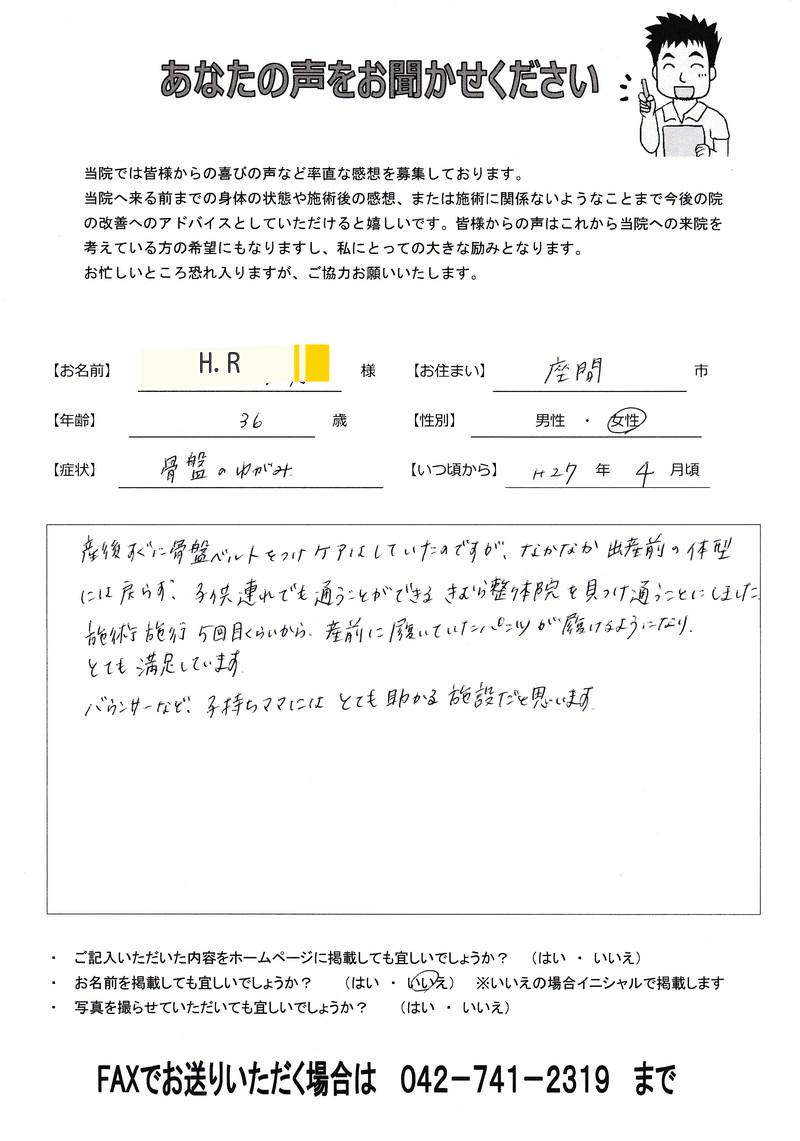 あなたの声をお聞かせください
当院では皆様からの喜びの声など率直な感想を募集しております。
当院へ来る前までの身体の状態や施術後の感想、または施術に関係ないようなことまで今後の院
の改善へのアドバイスとしていただけると嬉しいです。皆様からの声はこれから当院への来院を
考えている方の希望にもなりますし、私にとっての大きな励みとなります。
お忙しいところ恐れ入りますが、ご協力お願いいたします。
【お名前】 H.R 様 【お住まい】 座間 市
【年齢】 36 歳 【性別】 男性 ・ 女性
【症状】 骨盤のゆがみ 【いつ頃から】 H27 年 4 月頃
産後すぐに骨盤ベルトをつけケアはしていたのですが、なかなか出産前の体型
には戻らず、子供連れでも通うことができるきむら整体院を見つけ通うことにしました。
施術施行5回目くらいから、産前に履いていたパンツが履けるようになり、
とても満足しています。
バウンサーなど、子持ちママにはとても助かる施設だと思います。
・ ご記入いただいた内容をホームページに掲載しても宜しいでしょうか? (はい ・ いいえ)
・ お名前を掲載しても宜しいでしょうか? (はい ・ いいえ) ※いいえの場合イニシャルで掲載します
・ 写真を撮らせていただいても宜しいでしょうか? (はい ・ いいえ)
FAXでお送りいただく場合は 042-741-2319 まで